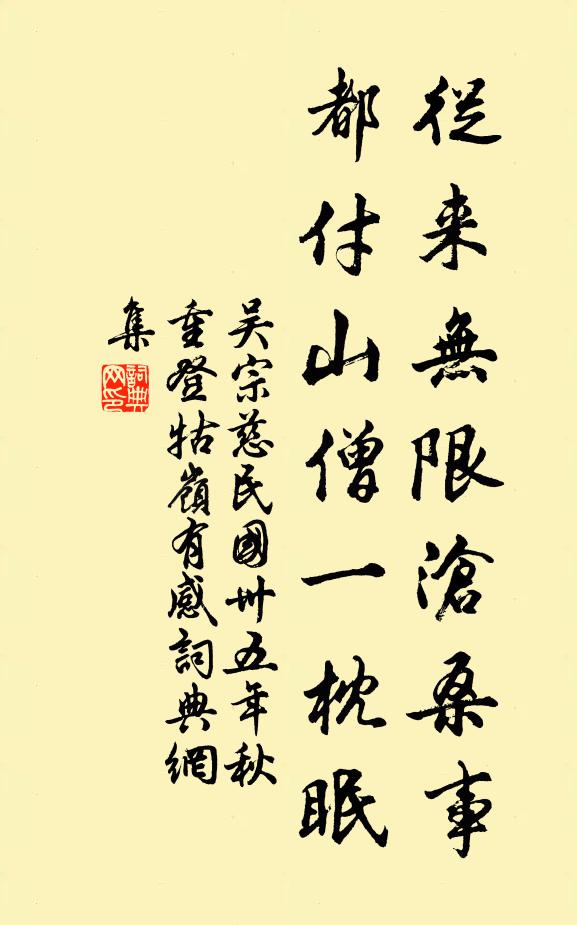 從来無限滄桑事
都付山僧一枕眠
吴宗慈民國卅五年秋
重登牯嶺有感詞典網
集
詞典
网印